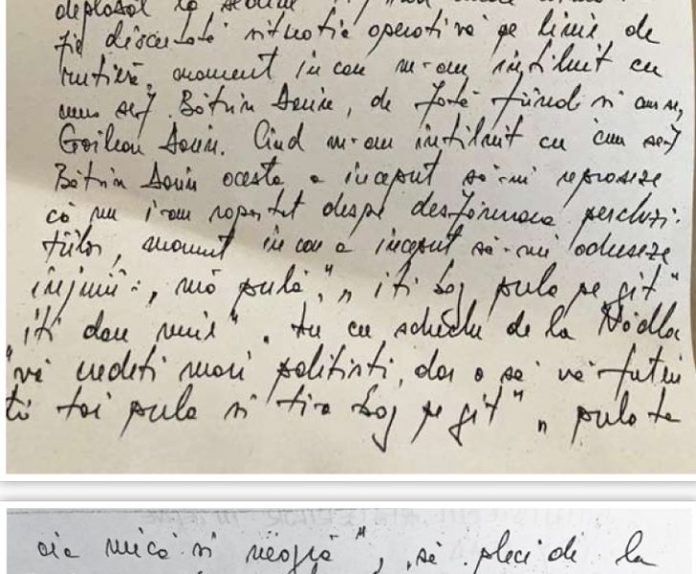 deplasat la sediul
fie discutată situația operativă pe linie de
rutieră, moment în care m-am întîlnit cu
cms șef Bătrîn Sorin, de față fiind și cms șef
Goilean Sorin. Cînd m-am întîlnit cu cms șef
Bătrîn Sorin acesta a început să-mi reproșeze
că nu i-am raportat despre desfășurarea percheziți-
țiilor, moment în care a început să-mi adreseze
injurii: „mă pulă", „îți bag pula pe gît"
„îți dau muie". Tu cu schiclu de la Nădlac
"vă credeți mari politisti, dar o să vă futeu
ti tai pula si ti-a bag pe gît" „pula ta
aia mică și neagră", să pleci de la